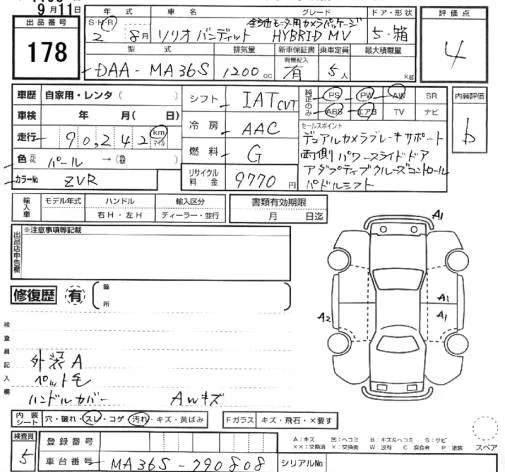 9月11日
出品番号
178
年式
車名
グレード
ドア・形状
評価点
S・H・R
2 8月
ソリオ バンディット
全方位モニター用カメラパッケージ
HYBRID MV
5・箱
4
型式
排気量
新車保証書
乗車定員
最大積載量
DAA-MA36S
1200cc
有
5人
kg
車歴
自家用・レンタ( )
シフト
IAT CVT
純正のみ
PS
PW
AW
SR
ABS
エアB
TV
ナビ
内装評価
b
車検
年 月( 日)
冷房
AAC
セールスポイント
デュアルカメラブレーキサポート
両側パワースライドドア
アダプティブクルーズコントロール
パドルシフト
走行
90,242
km
マイル
燃料
G
色
パール
カラーNo
ZVR
リサイクル料金
9770円
輸入車
モデル年式
ハンドル
輸入区分
書類有効期限
右H・左H
ディーラー・並行
月 日迄
出品店申告欄
※注意事項等記載
修復歴
有
箇所
検査員記入欄
外装A
ペット毛
ハンドルカバー
AWキズ
A1
A2
A1
A1
内装シート
穴・破れ・スレ・コゲ
汚れ
キズ・黄ばみ
Fガラス
キズ・飛石・×要す
スペア
検査員
5
登録番号
車台番号
MA36S-790808
シリアルNo